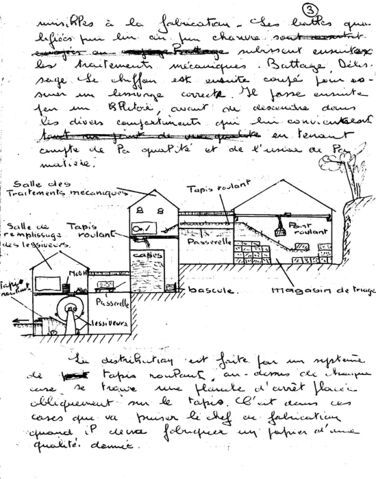 3
nuisibles à la fabrication. Les balles qua-
lifiées pur lin au pur chanvre
subissent ensuite
les traitements mécaniques. Battage, Délis-
sage. Le chiffon est ensuite coupé pour as-
surer un lessivage correct. Il passe ensuite
par un Blutoir, avant de descendre dans
les divers compartiments qui lui conviennent
en tenant
compte de la qualité et de l'usure de la
matière.
Salle des
Traitements mécaniques
Tapis roulant
Salle de
remplissage
des lessiveurs
Tapis
roulant
Pont
roulant
Passerelle
cases
Tapis
roulant
Passerelle
lessiveurs
bascule.
magasin de triage
La distribution est faite par un système
de tapis roulant, au-dessus de chaque
case se trouve une planche d'arrêt placée
obliquement sur le tapis. C'est dans ces
cases que va puiser le chef de fabrication
quand il devra fabriquer un papier d'une
qualité donnée.